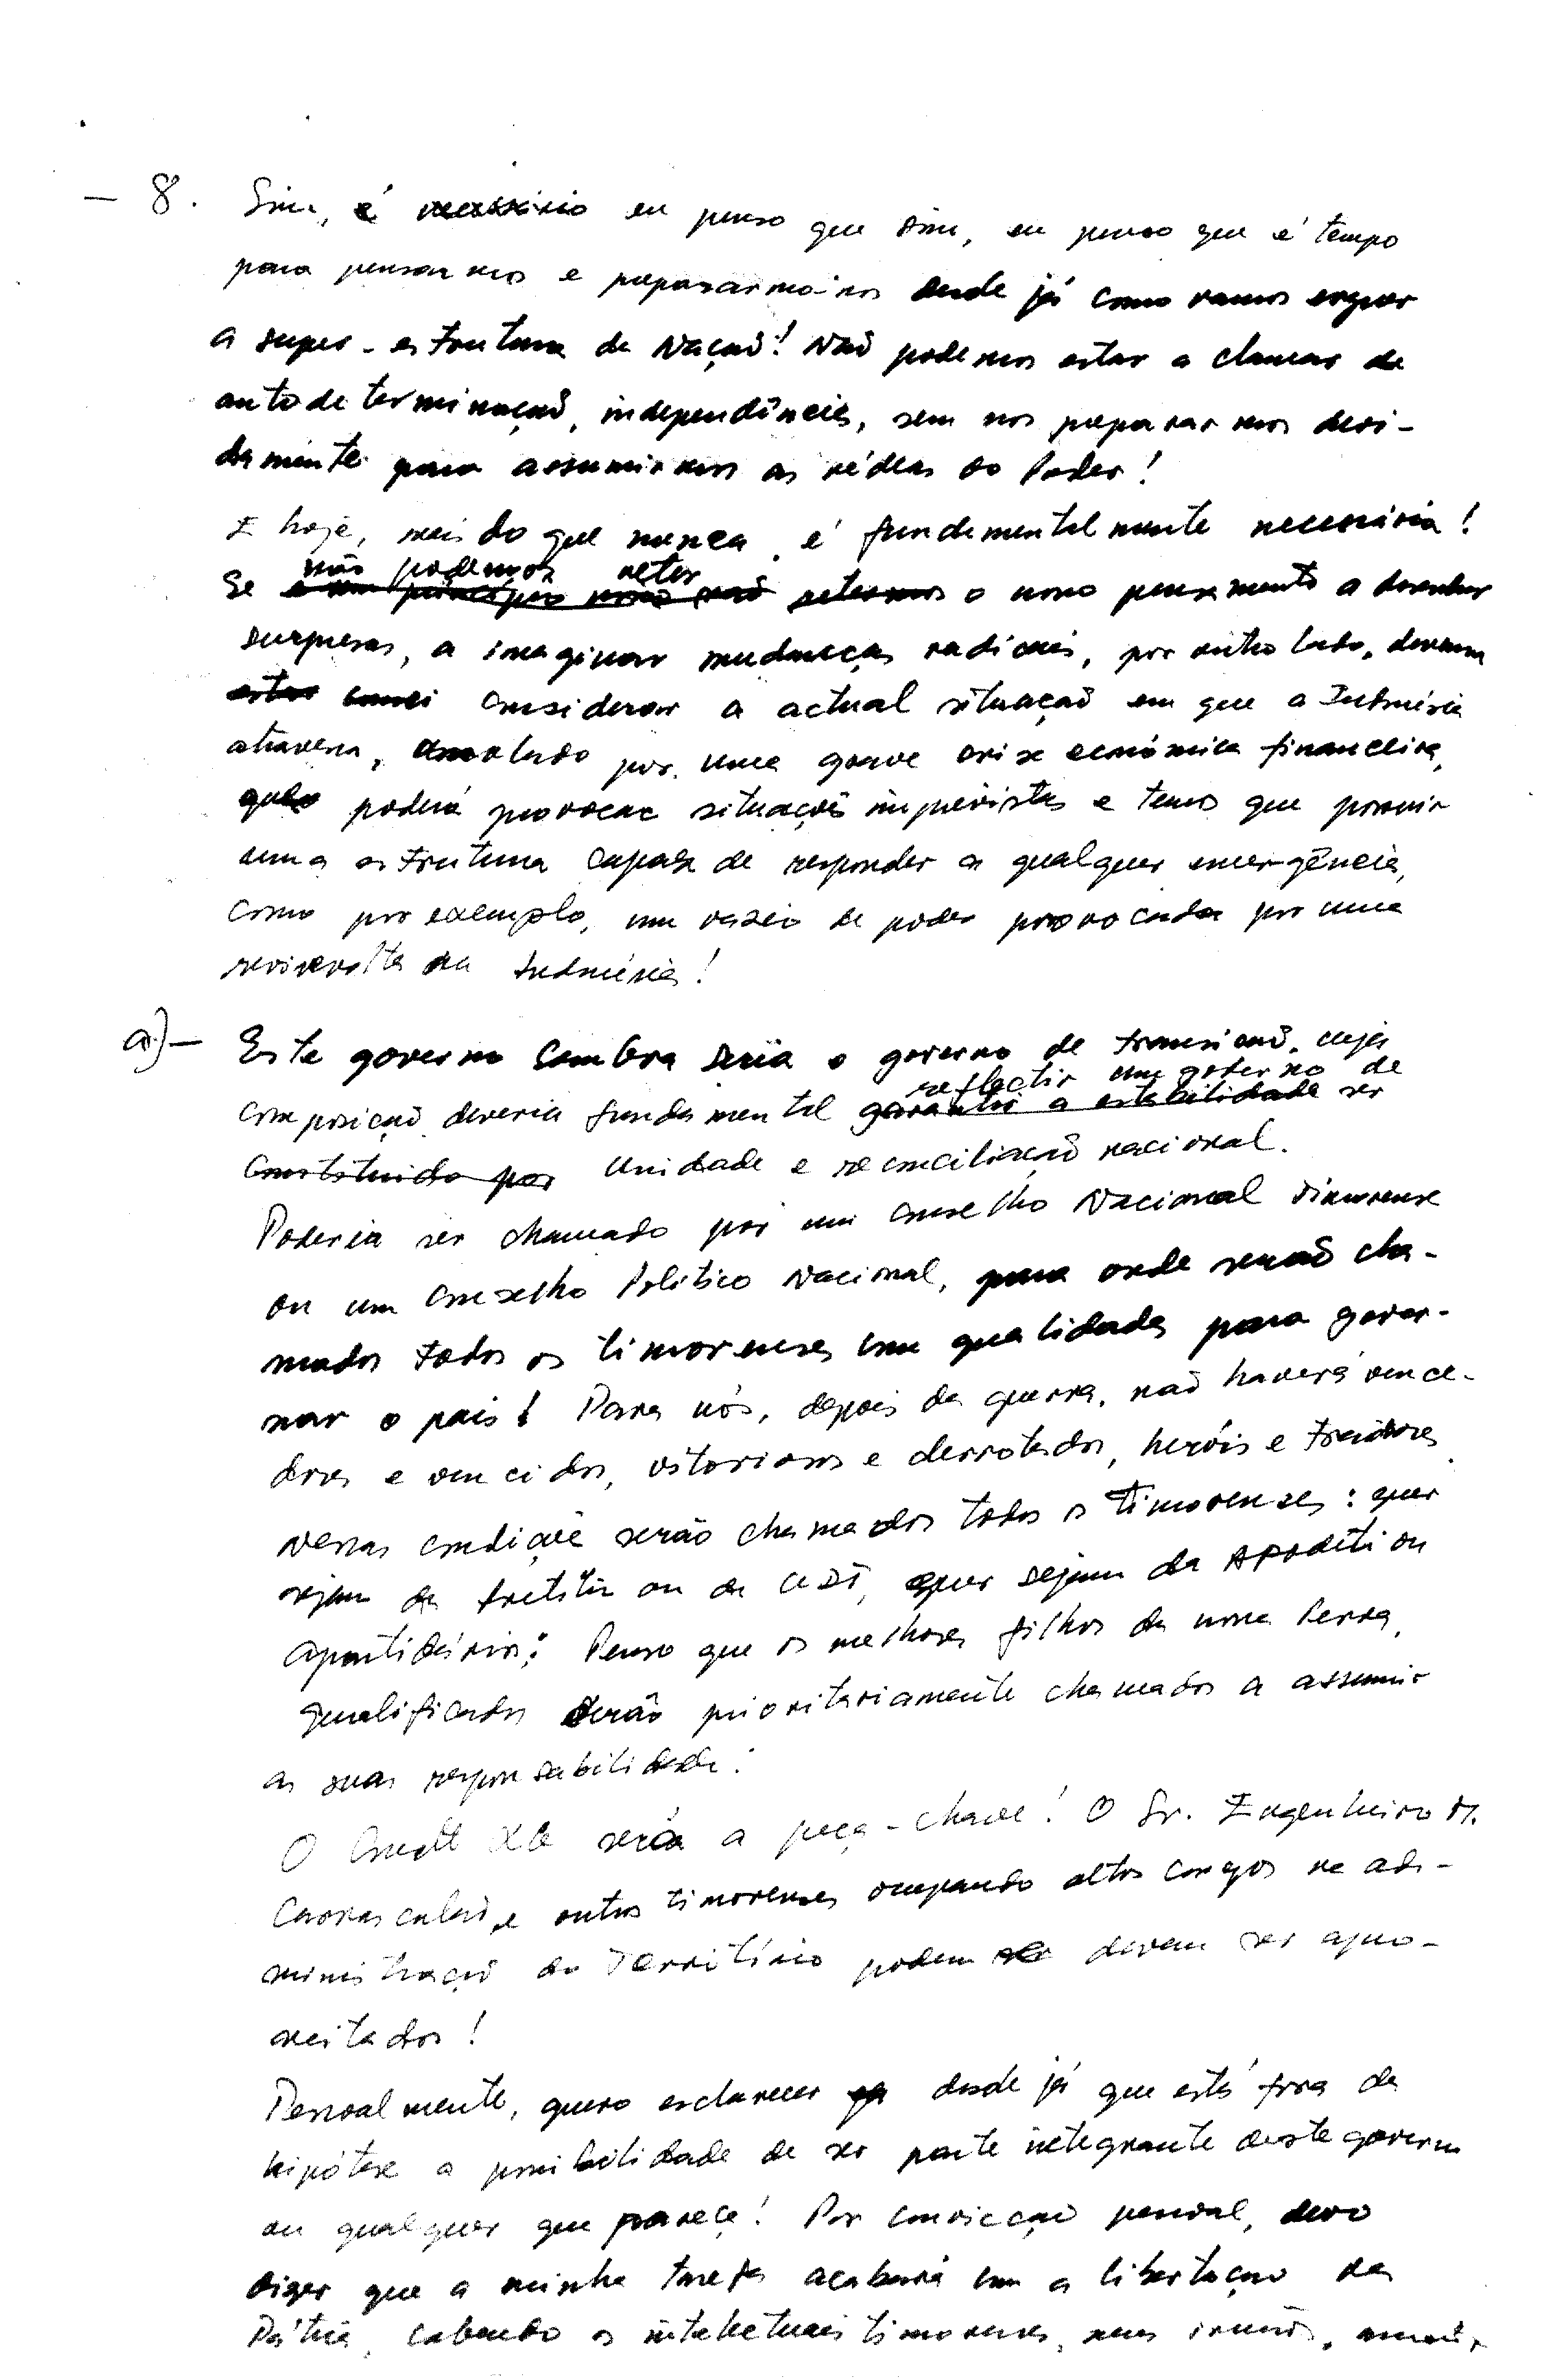 - 8. Sim, é necessário eu penso que sim, eu penso que é tempo
para pensarmos e prepararmo-nos desde já como vamos erguer
a super-estrutura da Nação! Não podemos estar a clamar de
autodeterminação, independência, sem nos prepararmos devi-
damente para assumirmos as rédeas do Poder!
E hoje, mais do que nunca, é fundamentalmente necessária!
não podemos reter
Se o nosso pensamento a desenhar
surpresas, a imaginar mudanças radicais, por outro lado, devemos
considerar a actual situação em que a Indonésia
atravessa, por uma grave crise económica financeira,
poderá provocar situações imprevistas e temos que possuir
uma estrutura capaz de responder a qualquer emergência,
como por exemplo, um vazio de poder provocada por uma
reviravolta na Indonésia!
a)- Este governo sombra seria o governo de transição, cuja
reflectir um governo de
composição deveria fundamental garantir a estabilidade ser
Constituído por Unidade e reconciliação nacional.
Poderia ser chamado por um Conselho Nacional Timorense
ou um Conselho Político Nacional, para onde serão cha-
mados todos os timorenses com qualidades para gover-
nar o país! Para nós, depois da guerra, não haverá vence-
dores e vencidos, vitoriosos e derrotados, heróis e traidores.
Nessas condições serão chamados todos os Timorenses: quer
sejam da Fretilin ou da UDT, quer sejam da APODETI ou
apartidários! Penso que os melhores filhos da nossa Terra,
qualificados serão prioritariamente chamados a assumir
as suas responsabilidade!
O será a peça-chave! O Sr. Engenheiro M.
Carrascalão, e outros timorenses ocupando altos cargos na ad-
ministração do Território podem devem ser apro-
veitados!
Pessoalmente, quero esclarecer desde já que está fora da
hipótese a possibilidade de ser parte integrante deste governo
ou qualquer que pareça! Por convicção pessoal, devo
dizer que a minha tarefa acabará com a libertação da
Pátria, cabendo os intelectuais timorenses, meus irmãos,